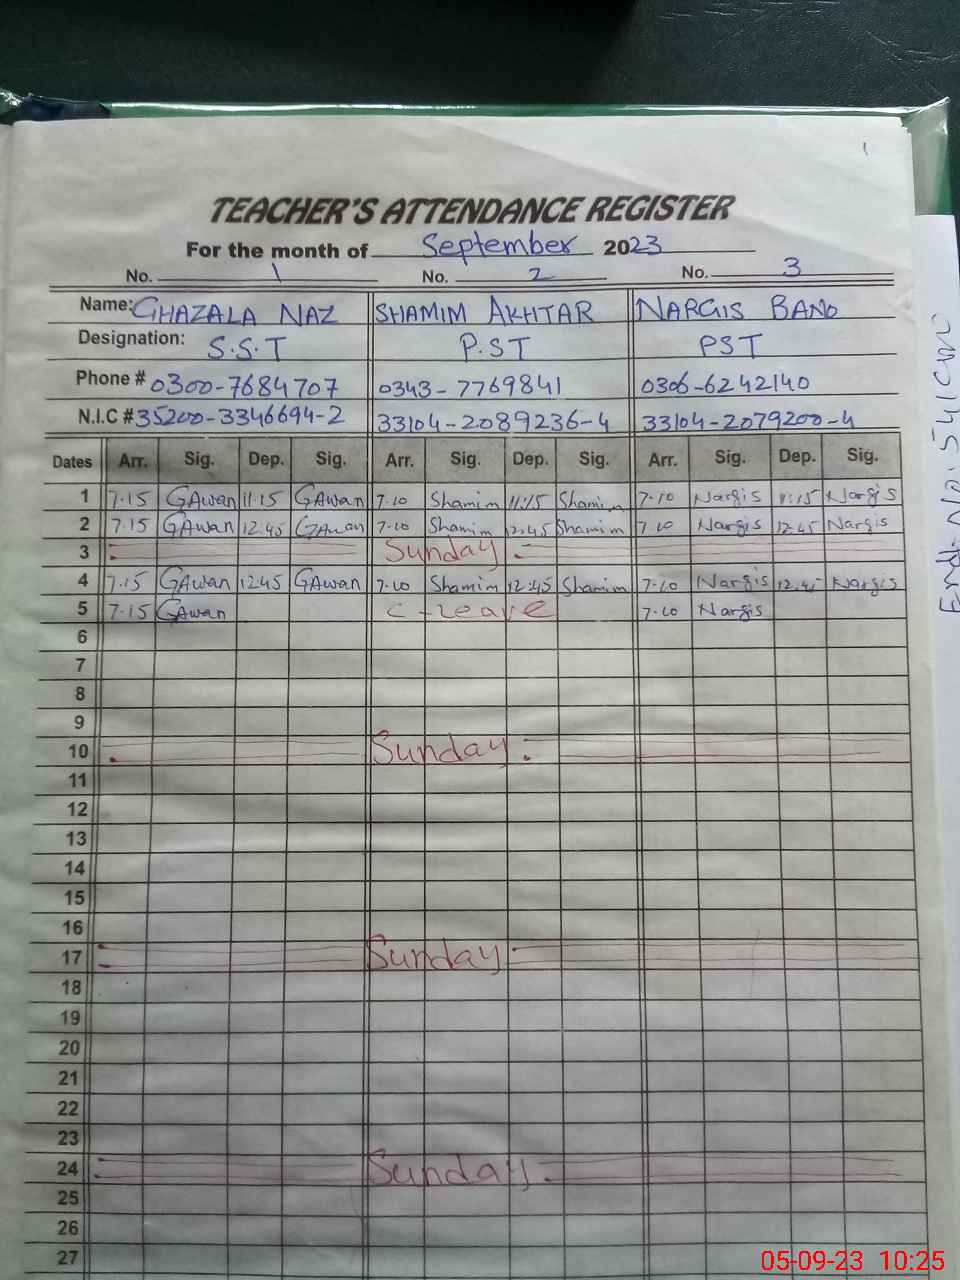 1
TEACHER'S ATTENDANCE REGISTER
For the month of September 2023
No. 1 No. 2 No. 3
Name: GHAZALA NAZ SHAMIM AKHTAR NARGIS BANO
Designation: S.S.T P.ST PST
Phone # 0300-7684707 0343-7769841 0306-6242140
N.I.C # 35200-3346694-2 33104-2089236-4 33104-2079200-4
Dates Arr. Sig. Dep. Sig. Arr. Sig. Dep. Sig. Arr. Sig. Dep. Sig.
1 7.15 GAwan 11.15 GAwan 7-10 Shamim 11:15 Shamim 7-10 Nargis 11:15 Nargis
2 7.15 GAwan 12.45 GAwan 7-10 Shamim 12:45 Shamim 7-10 Nargis 12.45 Nargis
3 Sunday
4 7.15 GAwan 12.45 GAwan 7-10 Shamim 12:45 Shamim 7-10 Nargis 12.45 Nargis
5 7.15 GAwan C-leave 7-10 Nargis
6
7
8
9
10 Sunday
11
12
13
14
15
16
17 Sunday
18
19
20
21
22
23
24 Sunday
25
26
27
05-09-23 10:25